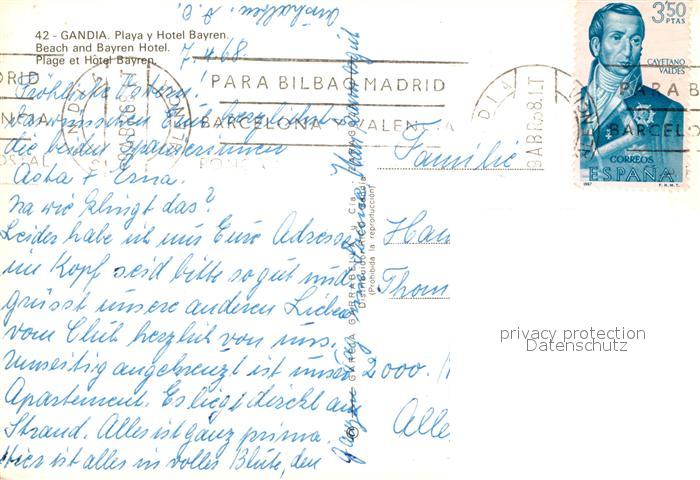 42 - GANDIA. Playa y Hotel Bayren.
Beach and Bayren Hotel.
Plage et Hotel Bayren.
7.4.68.
Fröhliche Ostern!
wünschen Euch herzlichst
die beiden Spanierinnen
Asta + Erna.
Na wie klingt das?
Leider habe ich nur Eure Adresse
im Kopf seid bitte so gut und
grüsst unsere anderen Lieben
vom Club herzlich von uns.
Umseitig angekreuzt ist unser
Apartement. Es liegt direkt am
Strand. Alles ist ganz prima.
Hier ist alles in voller Blüte, den
ganzen Tag
GARCIA GARRABELLA y Cia.
(Prohibida la reproducción)
PARA BILBAO MADRID
BARCELONA Y VALENCIA
PARA B
BARCELON
3'50
PTAS
CAYETANO
VALDES
CORREOS
ESPAÑA
1967
F.N.M.T.
Familie
Han
Thom
2000.
Alle
privacy protection
Datenschutz